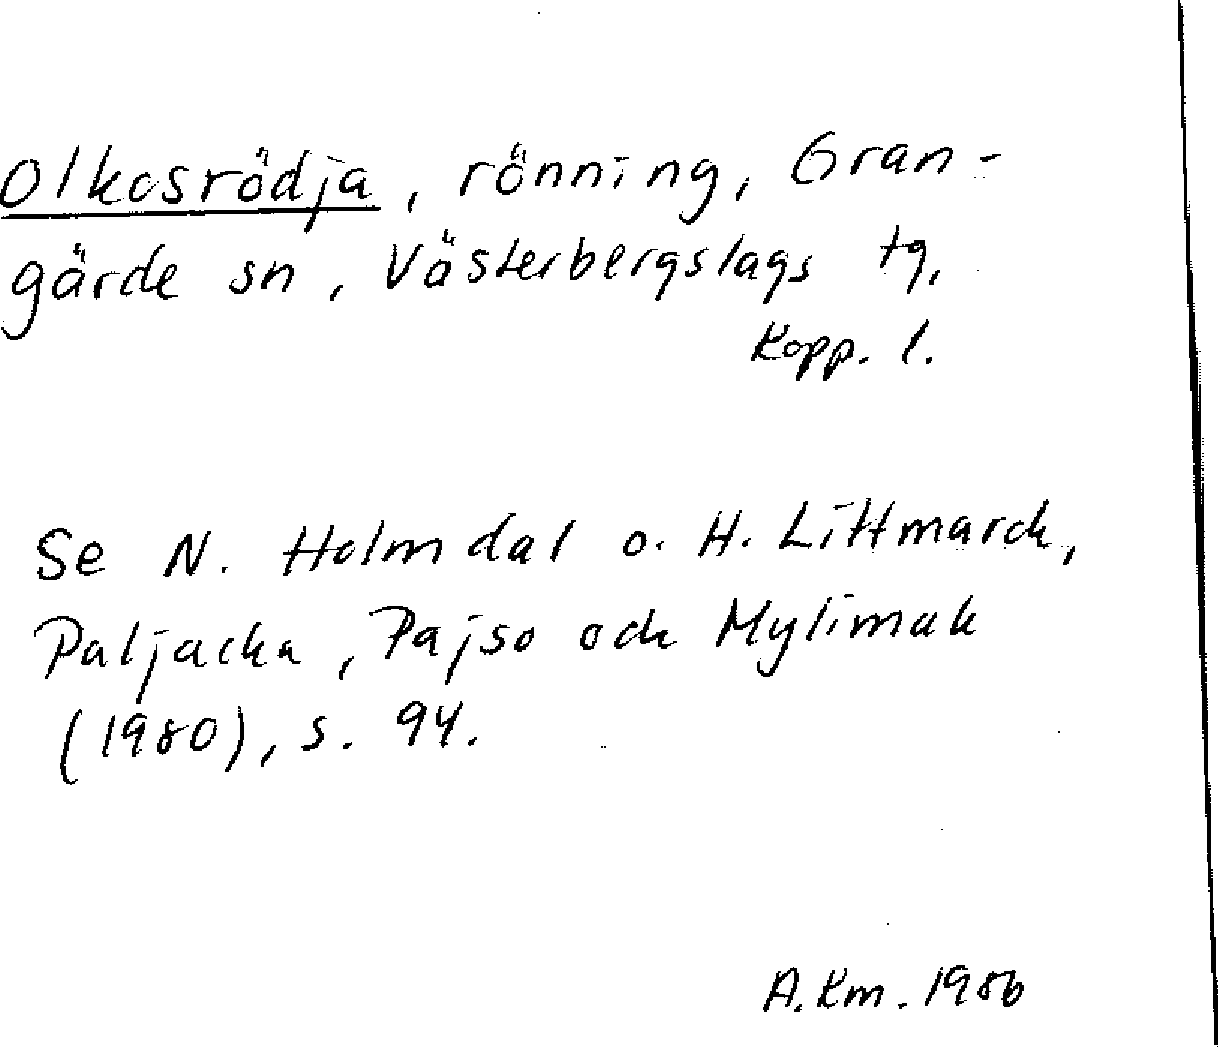 Olkosrödja, rönning, Gran-
gärde sn, Västerbergslags tg,
Kopp. l.
Se N. Holmdal o. H. Littmarck,
Paljacka, Pajso och Mylimak
(1980), s. 94.
A. Km. 1986